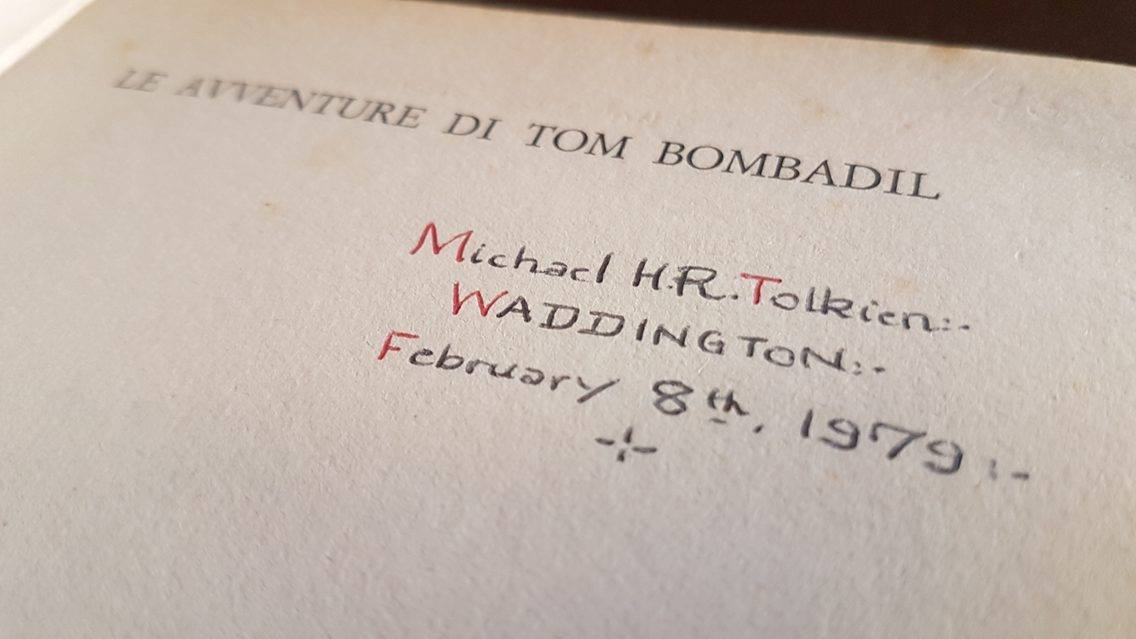 LE AVVENTURE DI TOM BOMBADIL
Michael H.R. Tolkien:-
WADDINGTON:-
February 8th, 1979:-